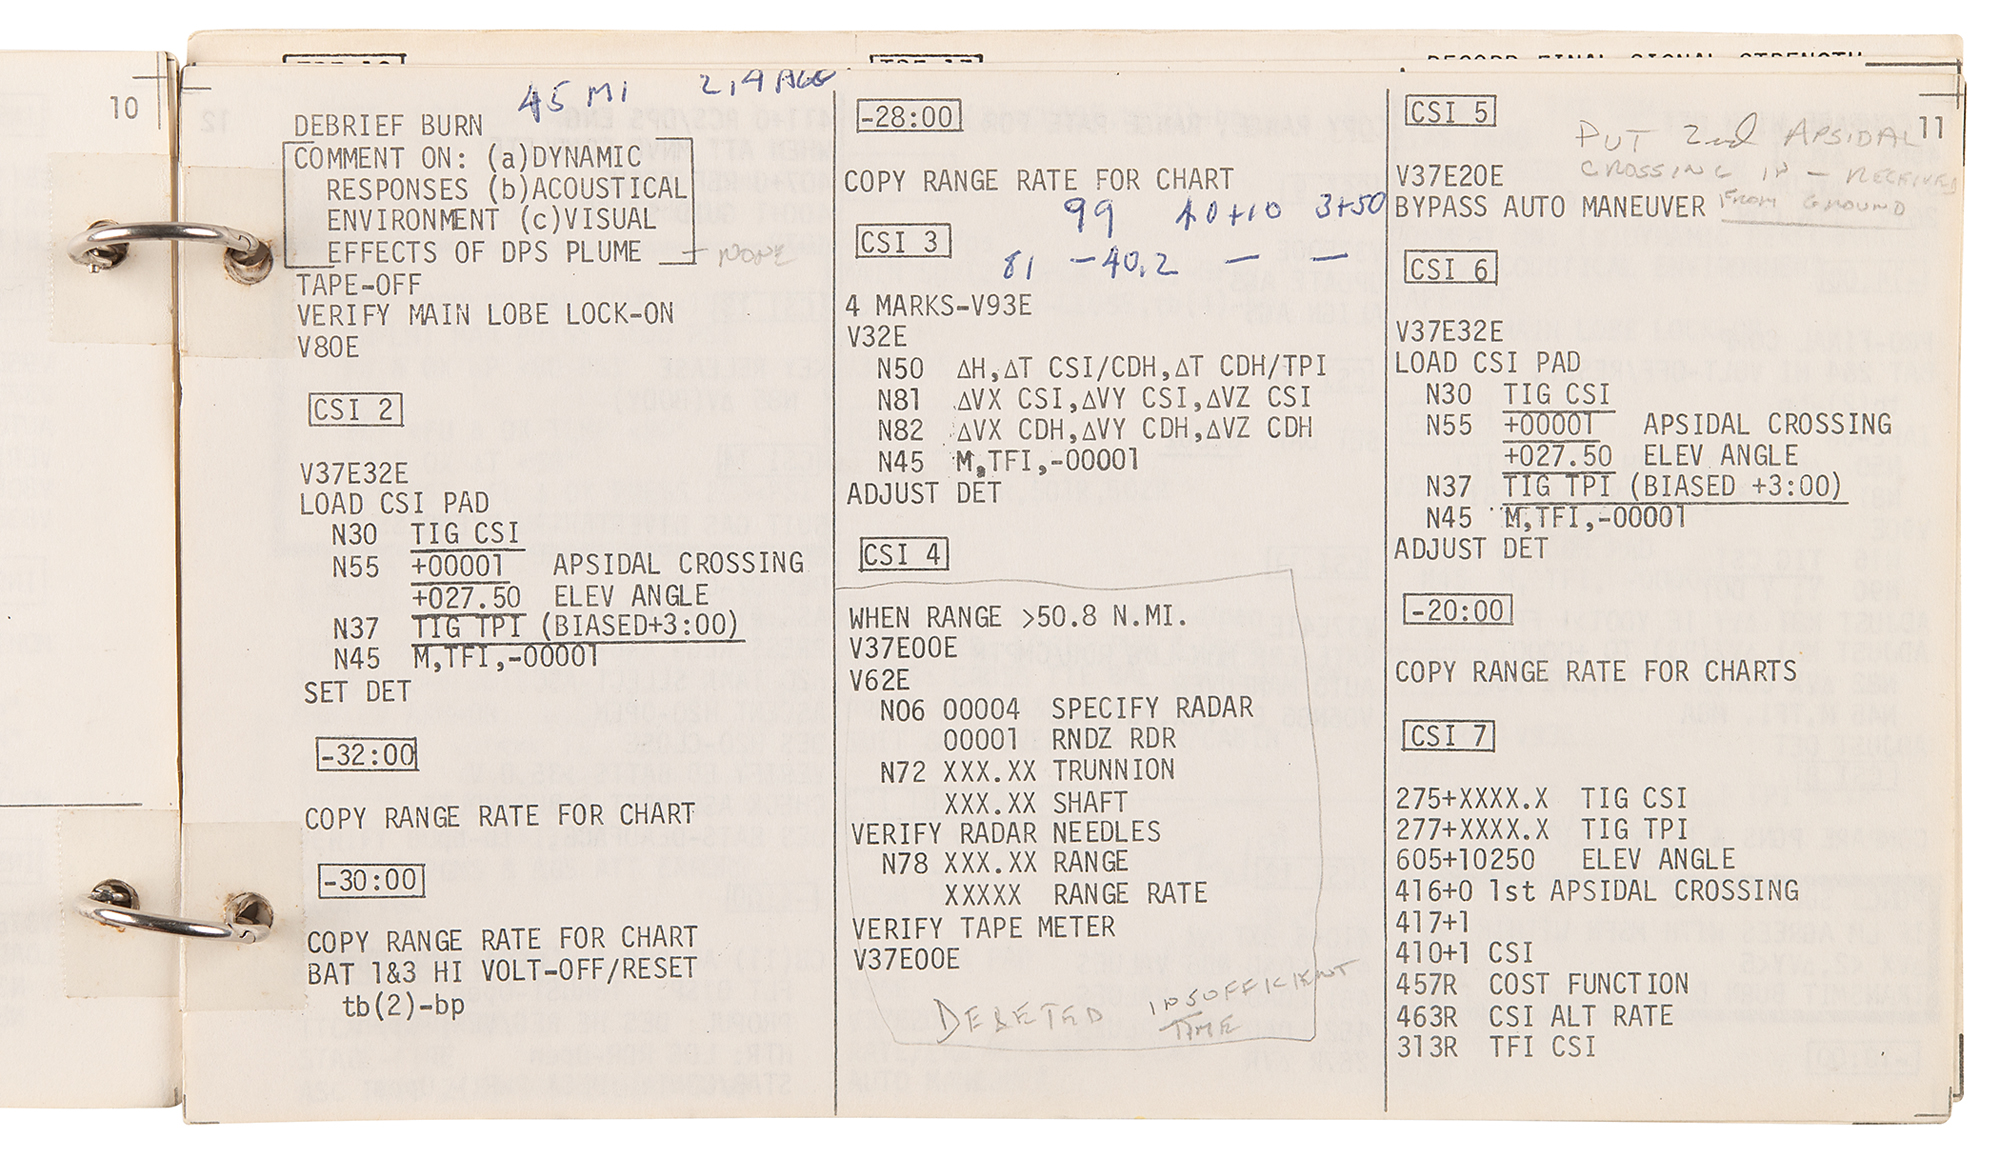 10
45 MI
DEBRIEF BURN
COMMENT ON: (a)DYNAMIC
RESPONSES (b)ACOUSTICAL
ENVIRONMENT (c)VISUAL
EFFECTS OF DPS PLUME - NONE
TAPE-OFF
VERIFY MAIN LOBE LOCK-ON
V80E
CSI 2
V37E32E
LOAD CSI PAD
N30 TIG CSI
N55 +00001 APSIDAL CROSSING
+027.50 ELEV ANGLE
N37 TIG TPI (BIASED+3:00)
N45 M,TFI,-00001
SET DET
-32:00
COPY RANGE RATE FOR CHART
-30:00
COPY RANGE RATE FOR CHART
BAT 1&3 HI VOLT-OFF/RESET
tb(2)-bp
-28:00
COPY RANGE RATE FOR CHART
99 40+10 3+50
CSI 3
81 -40.2 - -
4 MARKS-V93E
V32E
N50 ΔH,ΔT CSI/CDH,ΔT CDH/TPI
N81 ΔVX CSI,ΔVY CSI,ΔVZ CSI
N82 ΔVX CDH,ΔVY CDH,ΔVZ CDH
N45 M,TFI,-00001
ADJUST DET
CSI 4
WHEN RANGE >50.8 N.MI.
V37E00E
V62E
N06 00004 SPECIFY RADAR
00001 RNDZ RDR
N72 XXX.XX TRUNNION
XXX.XX SHAFT
VERIFY RADAR NEEDLES
N78 XXX.XX RANGE
XXXXX RANGE RATE
VERIFY TAPE METER
V37E00E
DELETED INSUFFICIENT
TIME
CSI 5
11
PUT 2nd APSIDAL
CROSSING IN - RECEIVED
FROM GROUND
V37E20E
BYPASS AUTO MANEUVER
CSI 6
V37E32E
LOAD CSI PAD
N30 TIG CSI
N55 +00001 APSIDAL CROSSING
+027.50 ELEV ANGLE
N37 TIG TPI (BIASED +3:00)
N45 M,TFI,-00001
ADJUST DET
-20:00
COPY RANGE RATE FOR CHARTS
CSI 7
275+XXXX.X TIG CSI
277+XXXX.X TIG TPI
605+10250 ELEV ANGLE
416+0 1st APSIDAL CROSSING
417+1
410+1 CSI
457R COST FUNCTION
463R CSI ALT RATE
313R TFI CSI